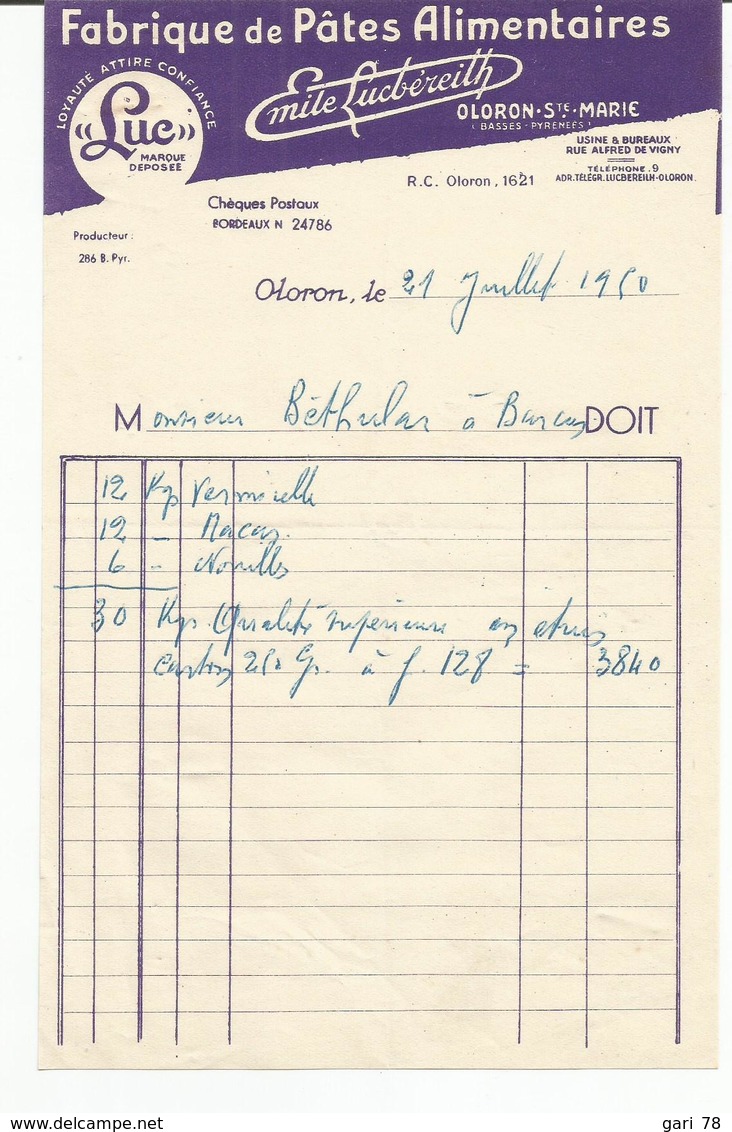 Fabrique de Pâtes Alimentaires
LOYAUTÉ ATTIRE CONFIANCE
"Luc"
MARQUE
DEPOSÉE
Emile Lucbéreilh
OLORON-STE-MARIE
(BASSES-PYRÉNÉES)
USINE & BUREAUX
RUE ALFRED DE VIGNY
TÉLÉPHONE.9
ADR.TÉLÉGR.LUCBEREILH-OLORON.
R.C. Oloron, 1621
Chèques Postaux
BORDEAUX N 24786
Producteur :
286 B. Pyr.
Oloron, le 21 Juillet 1950
Monsieur Béthular à Barcus DOIT
12 Kgs Vermicelle
12 - Macar.
6 - Nouilles
30 Kgs Qualité supérieure en étuis
cartons 250 Gr. à f. 128 = 3840
gari 78